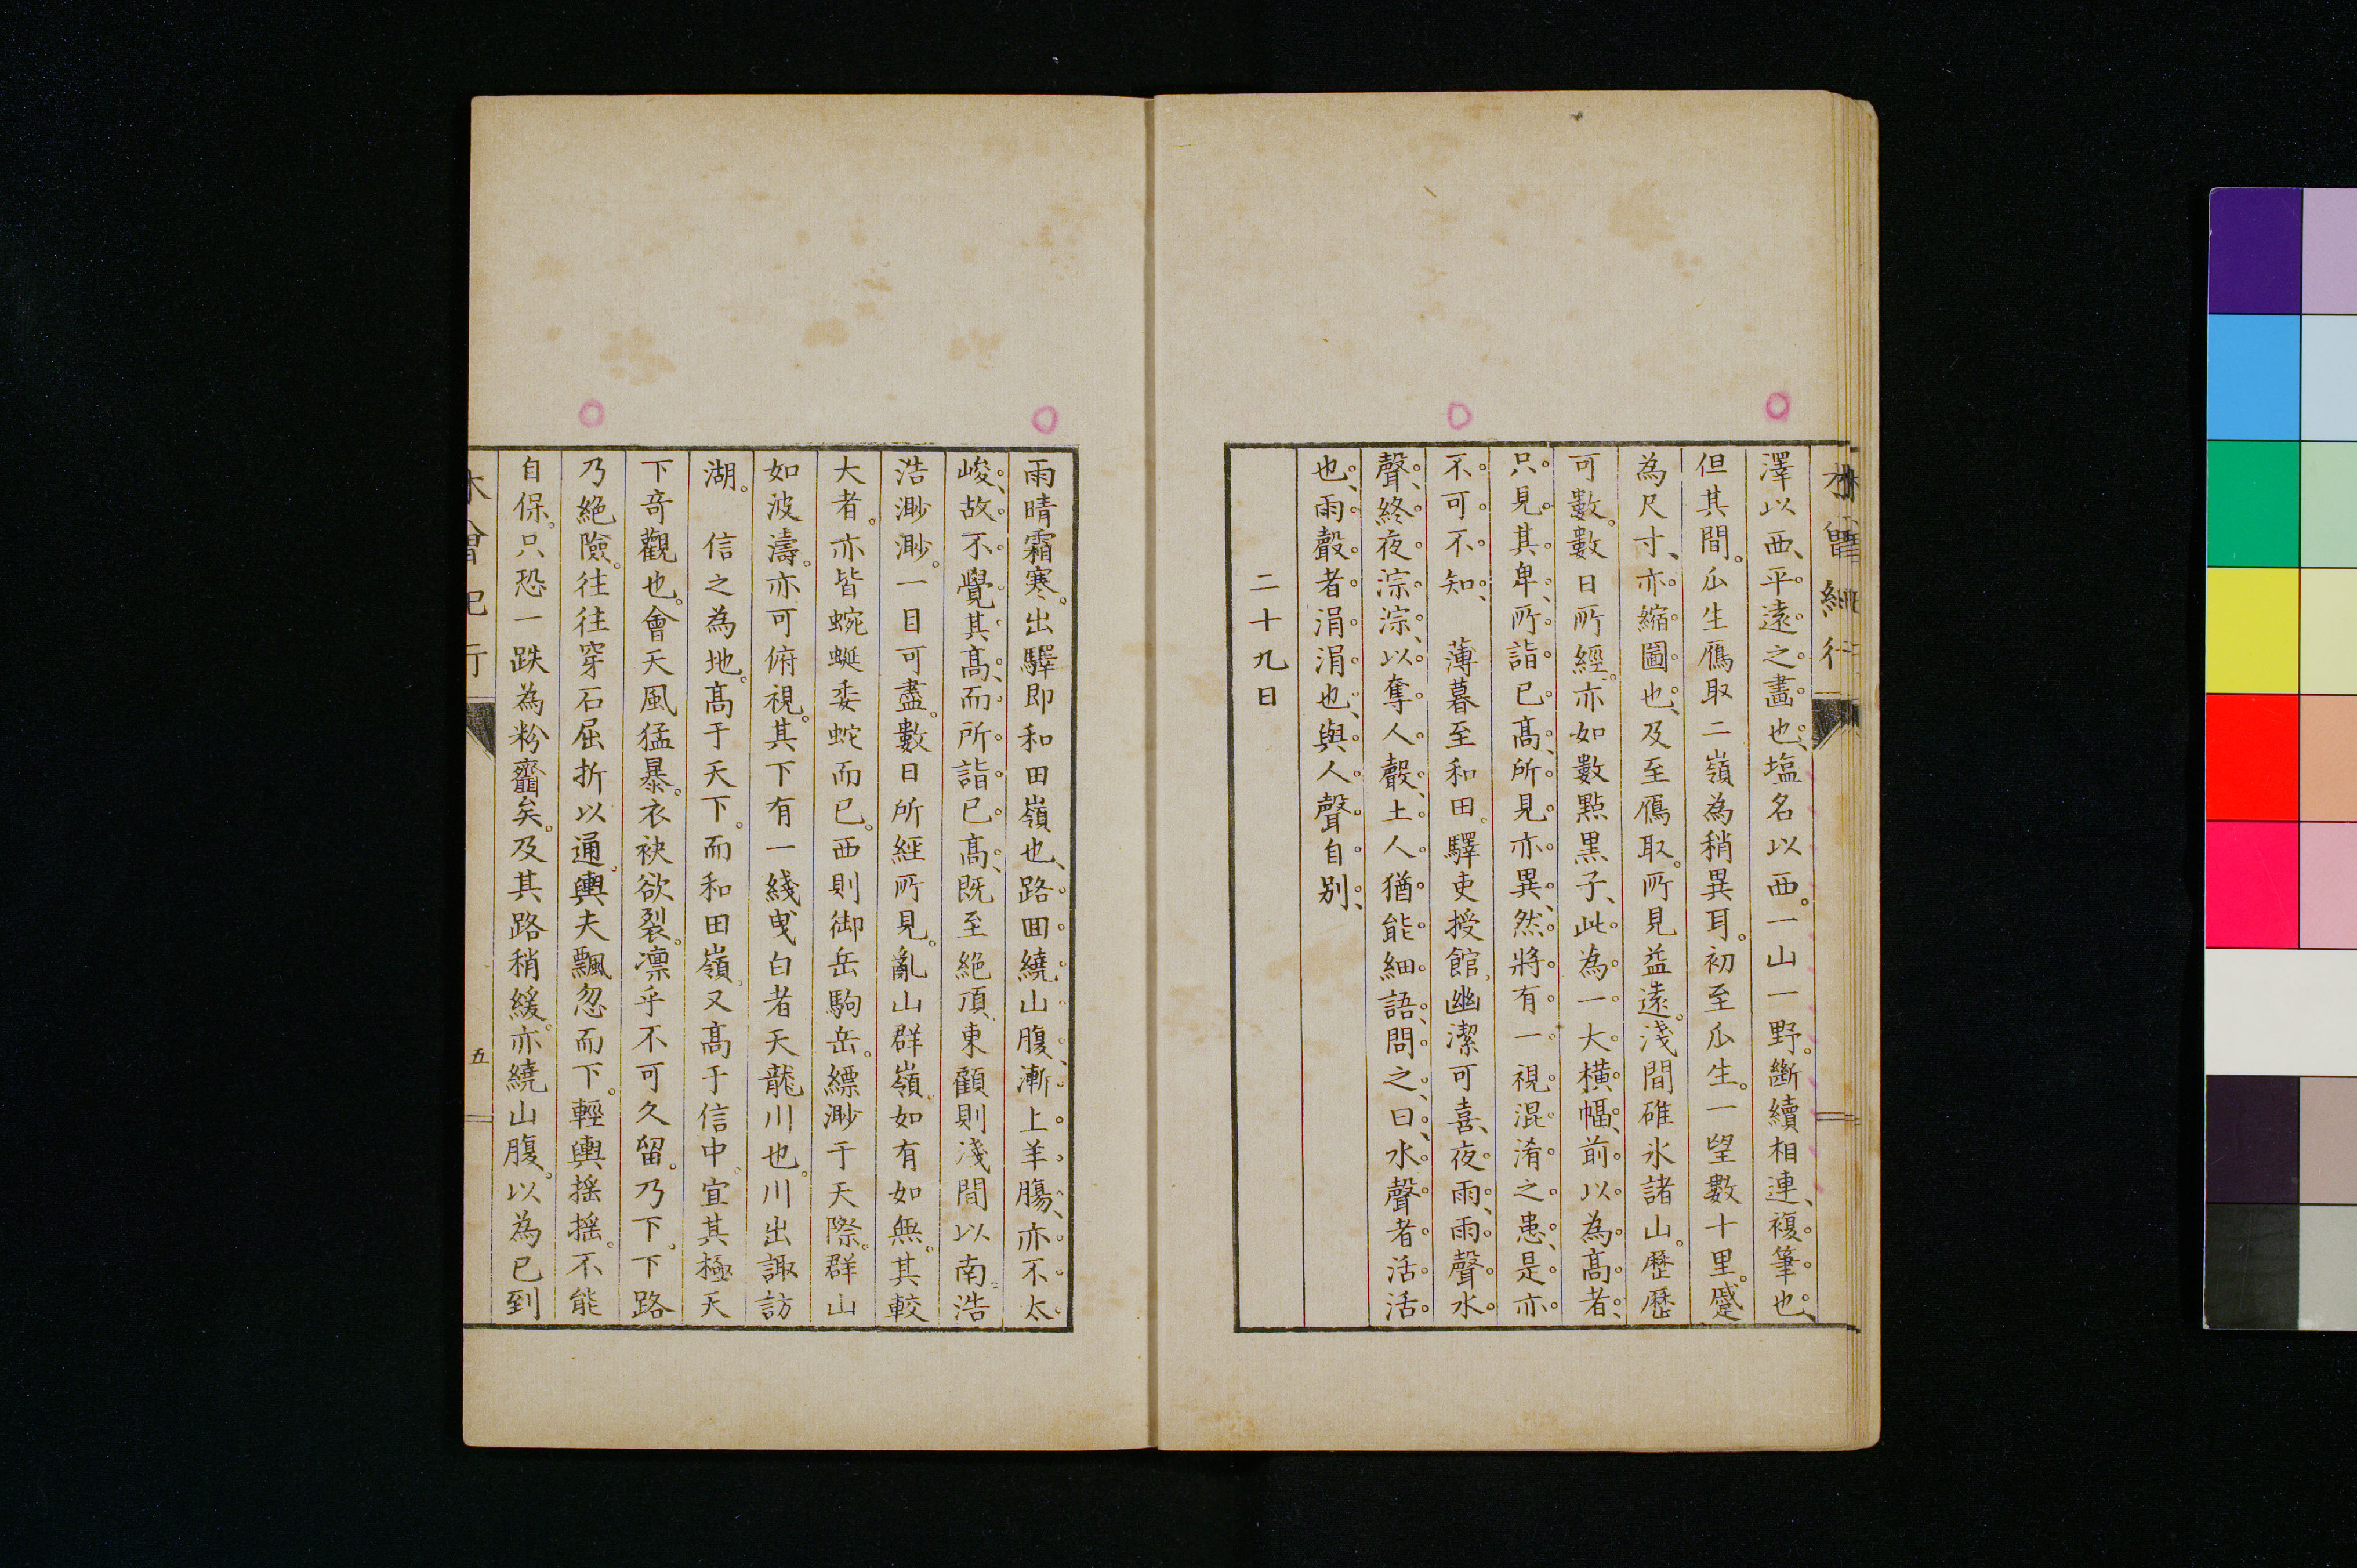 澤以西、平遠之畵也、塩名以西。一山一野。斷續相連、複筆也、
但其間。瓜生鴈取二嶺為稍異耳。初至瓜生。一望數十里。蹙
為尺寸、亦縮圖也、及至鴈取。所見益遠。淺間碓氷諸山。歷歷
可數。數日所經。亦如數點黒子、此為一大橫幅、前以為髙者、
只見其卑、所詣已髙、所見亦異、然將有一視混淆之患、是亦
不可不知、　薄暮至和田。驛吏授館。幽潔可喜、夜雨、雨聲水
聲、終夜淙淙、以奪人聲、土人猶能細語、問之、曰、水聲者活活
也、雨聲者涓涓也、與人聲自别、
二十九日
雨晴霜寒。出驛即和田嶺也、路回繞山腹、漸上羊膓、亦不太
峻、故不覺其髙、而所詣已髙、既至絶頂、東顧則淺間以南。浩
浩渺渺。一目可盡。數日所經所見。亂山群嶺。如有如無。其較
大者。亦皆蜿蜒委蛇而已。西則御岳駒岳。縹渺于天際。群山
如波濤。亦可俯視。其下有一綫曳白者天龍川也。川出諏訪
湖。　信之為地。髙于天下。而和田嶺。又髙于信中。宜其極天
下奇觀也。會天風猛暴。衣袂欲裂。凛乎不可久留。乃下。下路
乃絶險。往往穿石屈折以通。輿夫飄忽而下。輕輿揺揺。不能
自保。只恐一跌為粉齏矣。及其路稍緩。亦繞山腹。以為已到
木曾紀行
五